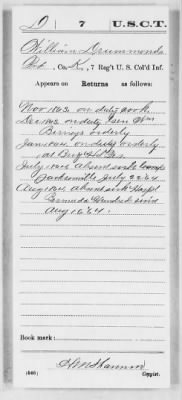 D 7 U.S.C.T.
William Drummonds
Pvt, Co. K, 7 Reg't U. S. Col'd Inf.
Appears on Returns as follows:
Nov 1863 on duty cook
Dec 1863 on duty Gen Wm
Birneys orderly
Jan 1864 on duty orderly
at Brig Hd Qrs
July 1864 absent sick
Jacksonville July 22 64
Aug 1864 absent sick Hospl
Bermuda Hundred since
Aug 16 64.
Book mark:
(546) Copyist.